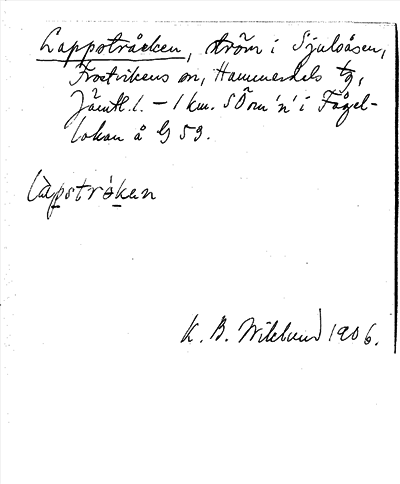 Lappstråcken, ström i Sjulsåsen,
Frostvikens sn, Hammerdals tg,
Jämtl. l. – 1 km. SO om 'n' i Fågel-
lokan å G 59.
làpstrå̀ken
K. B. Wiklund 1906.